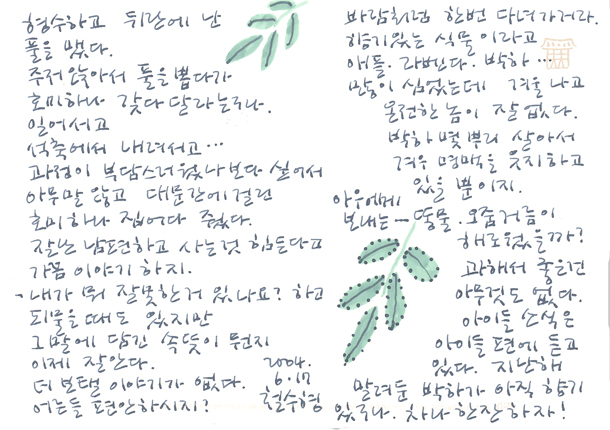 형수하고 뒤란에 난
풀을 맸다.
주저앉아서 풀을 뽑다가
호미하나 갖다 달라는구나.
일어서고
석축에서 내려서고…
과정이 복잡스러웠나보다 싶어서
아무말 않고 대문간에 걸린
호미하나 집어다 주었다.
잘난 남편하고 사는것 힘든다고
가끔 이야기 하지.
내가 뭐 잘못한거 있나요? 하고
되물을때도 있지만
그말에 담긴 속뜻이 뭔지
이제 잘안다.
더 보탤 이야기가 없다.
어른들 편안하시지?
2004.
6.17
철수형
바람처럼 한번 다녀가거라.
향기있는 식물이라고
애플. 라벤다. 박하…
만둥이 심었는데 겨울 나고
온전한 놈이 잘 없다.
박하 몇 뿌리 살아서
겨우 명맥을 유지하고
있을 뿐이지.
아우에게
보내는 ㅡ 똥물. 오줌거름이
해로웠을까?
과해서 좋은건
아무것도 없다.
아이들 소식은
아이들 편에 듣고
있다. 지난해
말려둔 박하가 아직 향기
있구나. 차나 한잔 하자!